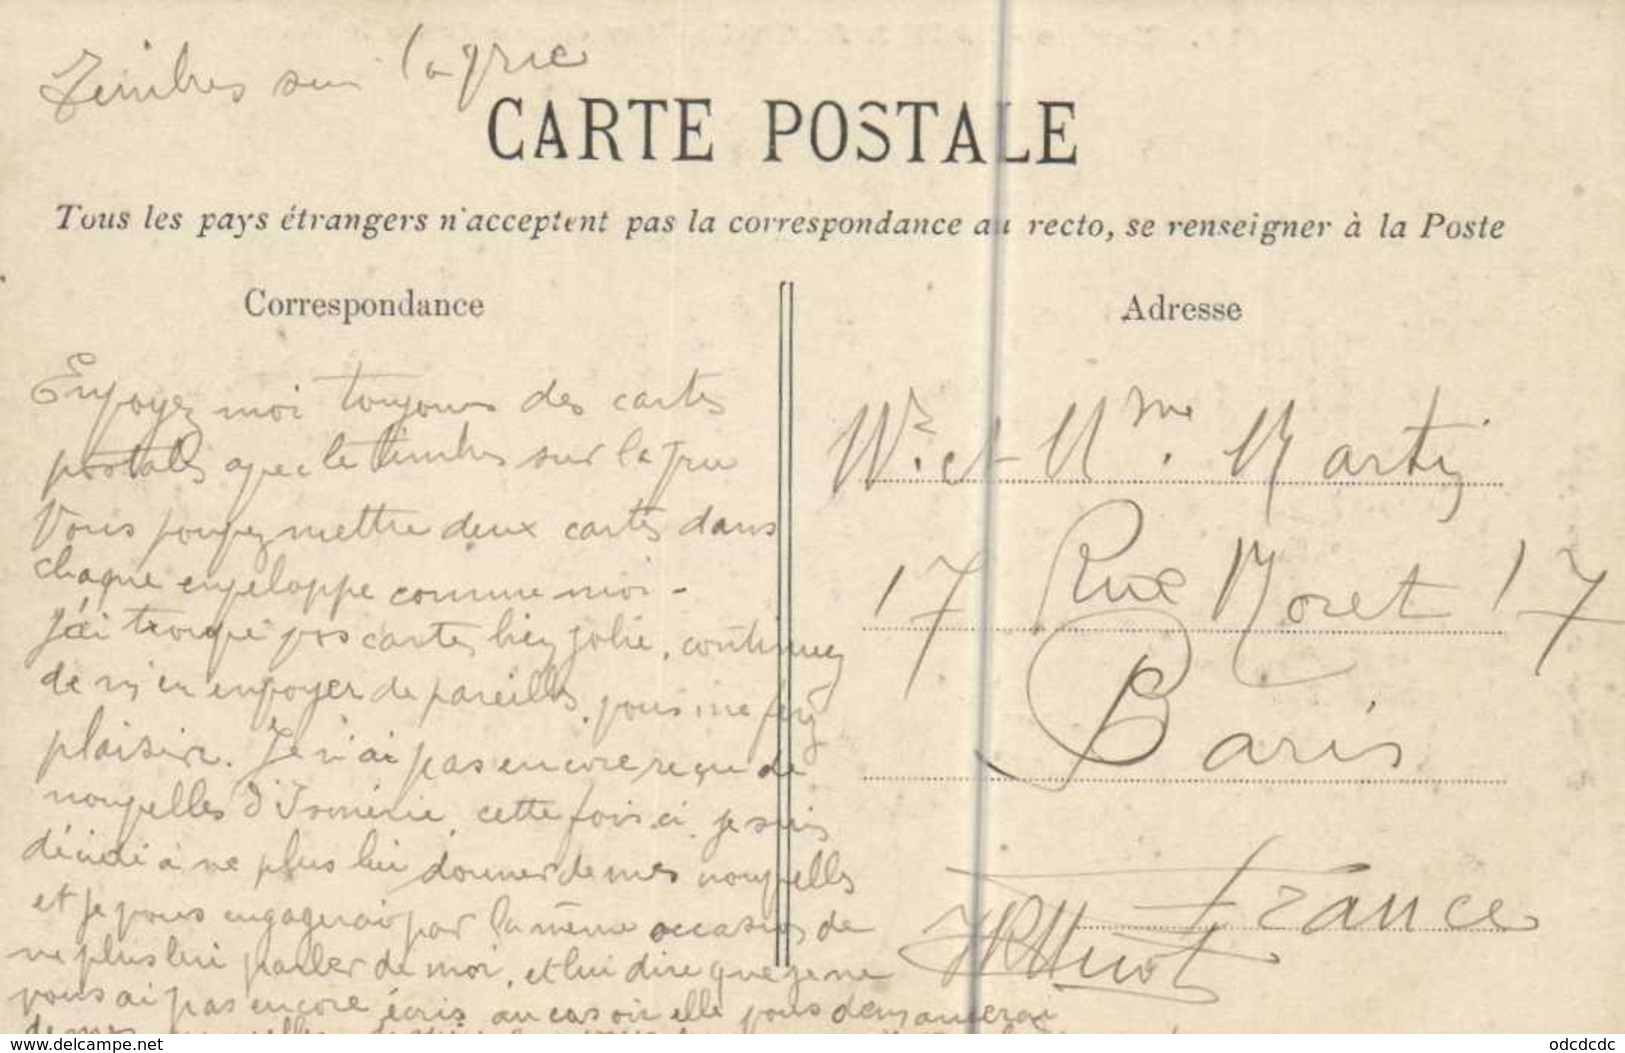 Timbres sur la grue
CARTE POSTALE
Tous les pays étrangers n'acceptent pas la correspondance au recto, se renseigner à la Poste
Correspondance
Adresse
Envoyez moi toujours des cartes
postales avec le timbres sur la
Vous pouvez mettre deux cartes dans
chaque enveloppe comme moi -
J'ai trouvé vos cartes bien jolie, continuez
de m'en envoyer de pareilles, vous me ferez
plaisir. Je n'ai pas encore reçu de
nouvelles d'Isménie cette fois ci, je suis
décidé à ne plus lui donner de mes nouvelles
et je vous engagerai par la même occasion de
ne plus lui parler de moi, et lui dire que je ne
vous ai pas encore écris au cas où elle vous demanderai
de mes
Mr. et Mme. Martin
17 Rue Moret 17
Paris
France
www.delcampe.net
odcdcdc